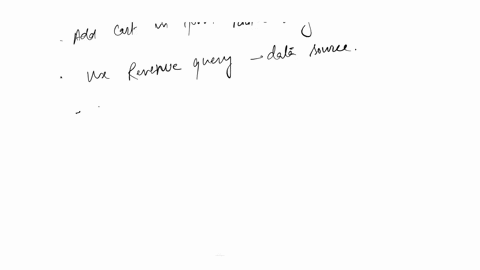 . Add Cart in
. Ux Revenue query → data source.
-